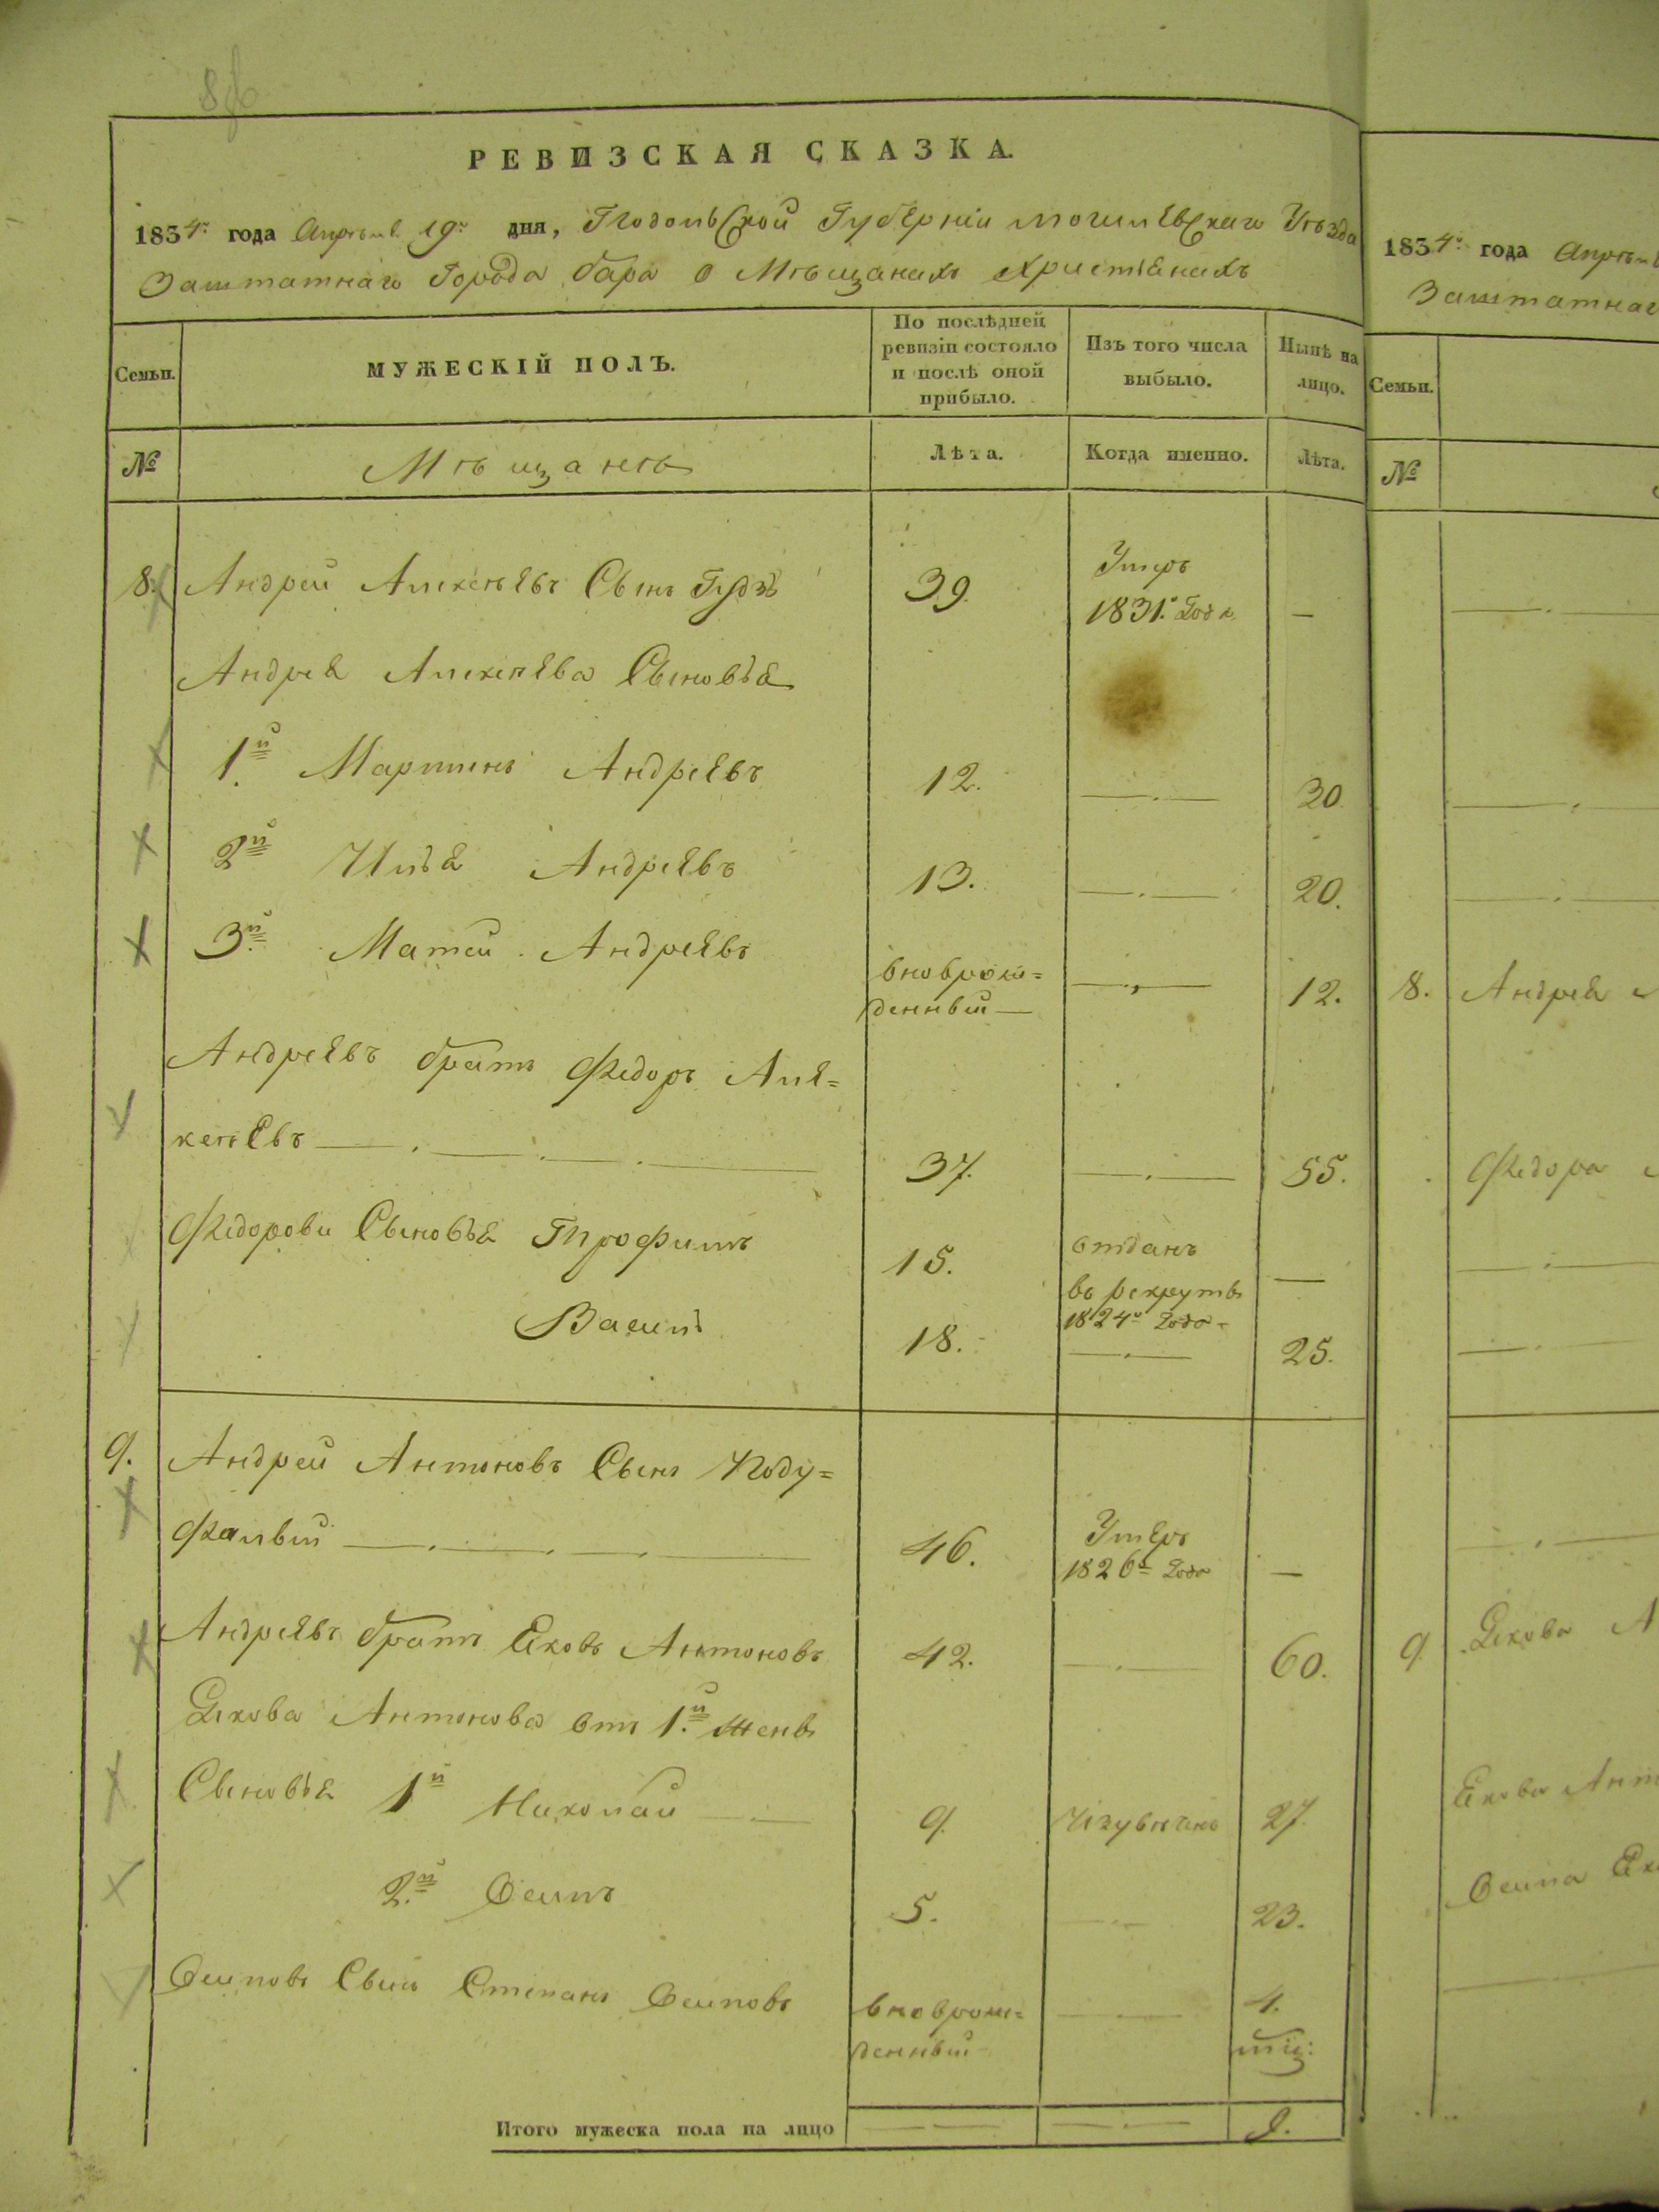 РЕВИЗСКАЯ СКАЗКА.
1834го года Апреля 19го дня, Подольской Губернiи Могилевскаго Уѣзда
Заштатнаго Города Бара о Мѣщанахъ Христiанахъ
Семьи.
МУЖЕСКIЙ ПОЛЪ.
По послѣдней ревизiи состояло и послѣ оной прибыло.
Изъ того числа выбыло.
Нынѣ на лицо.
№
Мѣщане
Лѣта.
Когда именно.
Лѣта.
8. Андрей Алексеевъ Сынъ Гудзь 39. Умеръ 1831го Года —
Андрея Алексеева Сыновья
1й Мартинъ Андреевъ 12. 30.
2й Илья Андреевъ 13. 20.
3й Матей Андреевъ вноврож=
денный 12.
Андреевъ братъ Федоръ Але=
ксеевъ 37. 55.
Федорови Сыновья Трофимъ 15. отданъ въ рекруты 1824го Года —
Васил 18. 25.
9. Андрей Антоновъ Сынъ
46. Умеръ 1826го Года —
Андреевъ братъ Яковъ Антоновъ 42. 60.
Якова Антонова отъ 1й жены
Сыновья 1й Николай 9. 27.
2й Осипъ 5. 23.
Осиповъ Сынъ Степанъ Осиповъ вноврож=
денный 4.
Итого мужеска пола на лицо 9.
1834го года Апреля
Заштатнаг
Семьи.
№
8. Андрея
Федора
9 Якова А
Якова Ант
Осипа